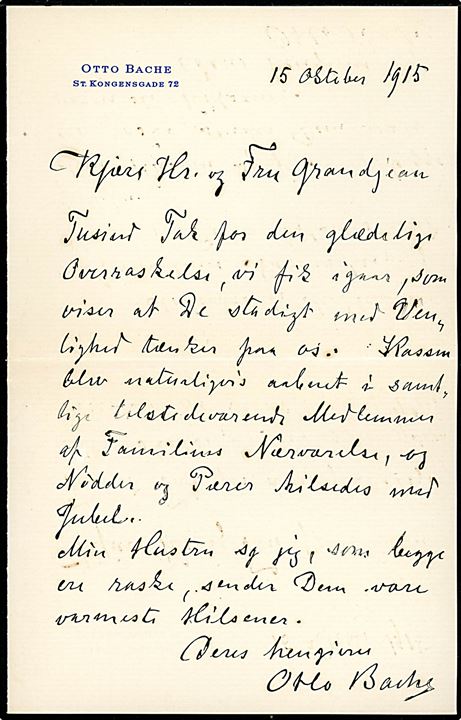 OTTO BACHE
ST. KONGENSGADE 72
15 Oktober 1915
Kjære Hr. og Fru Grandjean
Tusind Tak for den glædelige
Overraskelse, vi fik igaar, som
viser at De stadigt med Ven-
lighed tænker paa os. Kassen
blev naturligvis aabnet i samt-
lige tilstedeværende Medlemmer
af Familiens Nærværelse, og
Nødder og Pærer hilsedes med
Jubel.
Min Hustru og jeg, som begge
ere raske, sender Dem vore
varmeste Hilsener.
Deres hengivne
Otto Bache